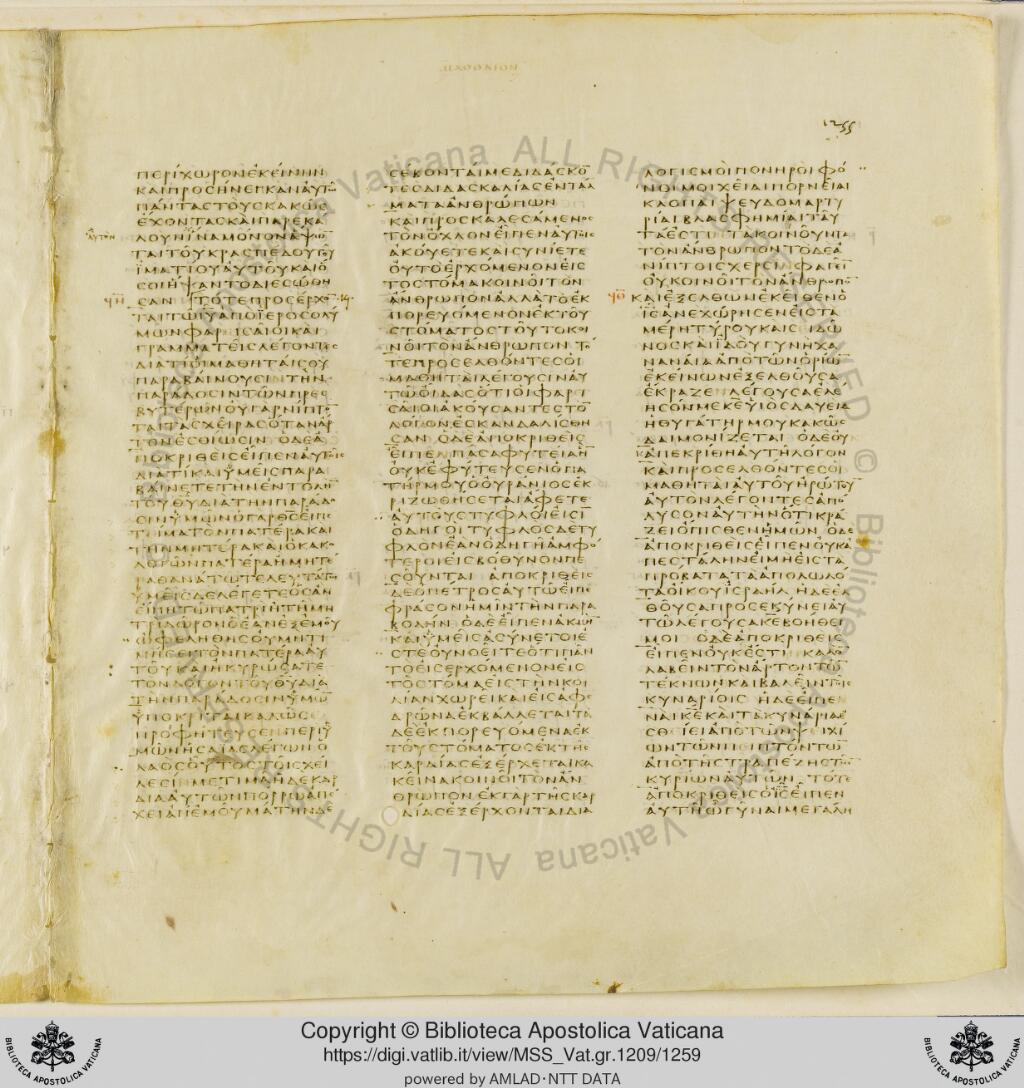 ϛσ̅ι̅
ΠΕΡΙΧΩΡΟΝΕΚΕΙΝΗΝ
ΚΑΙΠΡΟΣΗΝΕΓΚΑΝΑΥΤΩ
ΠΑΝΤΑΣΤΟΥΣΚΑΚΩΣ
ΕΧΟΝΤΑΣΚΑΙΠΑΡΕΚΑ
αυτον ΛΟΥΝΙΝΑΜΟΝΟΝΑΨΩ̅
ΤΑΙΤΟΥΚΡΑΣΠΕΔΟΥΤΟΥ
ΙΜΑΤΙΟΥΑΥΤΟΥΚΑΙΟ
ΣΟΙΗΨΑΝΤΟΔΙΕΣΩΘΗ
ΣΑΝ ΤΟΤΕΠΡΟΣΕΡΧΟ̅
ΤΑΙΤΩΙ̅Υ̅ΑΠΟΙΕΡΟΣΟΛΥ
ΜΩΝΦΑΡΙΣΑΙΟΙΚΑΙ
ΓΡΑΜΜΑΤΕΙΣΛΕΓΟΝΤΕΣ
ΔΙΑΤΙΟΙΜΑΘΗΤΑΙΣΟΥ
ΠΑΡΑΒΑΙΝΟΥΣΙΝΤΗΝ
ΠΑΡΑΔΟΣΙΝΤΩΝΠΡΕΣ
ΒΥΤΕΡΩΝΟΥΓΑΡΝΙΠΤΟ̅
ΤΑΙΤΑΣΧΕΙΡΑΣΟΤΑΝΑΡ
ΤΟΝΕΣΘΙΩΣΙΝ ΟΔΕΑ
ΠΟΚΡΙΘΕΙΣΕΙΠΕΝΑΥΤΟΙΣ
ΔΙΑΤΙΚΑΙΥΜΕΙΣΠΑΡΑ
ΒΑΙΝΕΤΕΤΗΝΕΝΤΟΛΗ̅
ΤΟΥΘ̅Υ̅ΔΙΑΤΗΝΠΑΡΑΔΟ
ΣΙΝΥΜΩΝΟΓΑΡΘ̅Σ̅ΕΙΠΕ
ΤΙΜΑΤΟΝΠΑΤΕΡΑΚΑΙ
ΤΗΝΜΗΤΕΡΑΚΑΙΟΚΑΚΟ
ΛΟΓΩΝΠΑΤΕΡΑΗΜΗΤΕ
ΡΑΘΑΝΑΤΩΤΕΛΕΥΤΑΤΩ
ΥΜΕΙΣΔΕΛΕΓΕΤΕΟΣΑΝ
ΕΙΠΗΤΩΠΑΤΡΙΗΤΗΜΗ
ΤΡΙΔΩΡΟΝΟΕΑΝΕΞΕΜΟΥ
ΩΦΕΛΗΘΗΣΟΥΜΗΤΙ
ΜΗΣΕΙΤΟΝΠΑΤΕΡΑΑΥ
ΤΟΥΚΑΙΗΚΥΡΩΣΑΤΕ
ΤΟΝΛΟΓΟΝΤΟΥΘ̅Υ̅ΔΙΑ
ΤΗΝΠΑΡΑΔΟΣΙΝΥΜΩ̅
ΥΠΟΚΡΙΤΑΙΚΑΛΩΣΕ
ΠΡΟΦΗΤΕΥΣΕΝΠΕΡΙΥ
ΜΩΝΗΣΑΙΑΣΛΕΓΩΝ Ο
ΛΑΟΣΟΥΤΟΣΤΟΙΣΧΕΙ
ΛΕΣΙΝΜΕΤΙΜΑΗΔΕΚΑΡ
ΔΙΑΑΥΤΩΝΠΟΡΡΩΑΠΕ
ΧΕΙΑΠΕΜΟΥΜΑΤΗΝΔΕ
ΣΕΒΟΝΤΑΙΜΕΔΙΔΑΣΚΟ̅
ΤΕΣΔΙΔΑΣΚΑΛΙΑΣΕΝΤΑΛ
ΜΑΤΑΑΝΘΡΩΠΩΝ
ΚΑΙΠΡΟΣΚΑΛΕΣΑΜΕΝΟΣ
ΤΟΝΟΧΛΟΝΕΙΠΕΝΑΥΤΟΙΣ
ΑΚΟΥΕΤΕΚΑΙΣΥΝΙΕΤΕ
ΟΥΤΟΕΡΧΟΜΕΝΟΝΕΙΣ
ΤΟΣΤΟΜΑΚΟΙΝΟΙΤΟΝ
ΑΝΘΡΩΠΟΝΑΛΛΑΤΟΕΚ
ΠΟΡΕΥΟΜΕΝΟΝΕΚΤΟΥ
ΣΤΟΜΑΤΟΣΤΟΥΤΟΚΟΙ
ΝΟΙΤΟΝΑΝΘΡΩΠΟΝ ΤΟ
ΤΕΠΡΟΣΕΛΘΟΝΤΕΣΟΙ
ΜΑΘΗΤΑΙΛΕΓΟΥΣΙΝΑΥ
ΤΩΟΙΔΑΣΟΤΙΟΙΦΑΡΙ
ΣΑΙΟΙΑΚΟΥΣΑΝΤΕΣΤΟ̅
ΛΟΓΟΝΕΣΚΑΝΔΑΛΙΣΘΗ
ΣΑΝ ΟΔΕΑΠΟΚΡΙΘΕΙΣ
ΕΙΠΕΝΠΑΣΑΦΥΤΕΙΑΗ̅
ΟΥΚΕΦΥΤΕΥΣΕΝΟΠΑ
ΤΗΡΜΟΥΟΟΥΡΑΝΙΟΣΕΚ
ΡΙΖΩΘΗΣΕΤΑΙΑΦΕΤΕ
ΑΥΤΟΥΣΤΥΦΛΟΙΕΙΣΙ̅
ΟΔΗΓΟΙ ΤΥΦΛΟΣΔΕΤΥ
ΦΛΟΝΕΑΝΟΔΗΓΗΑΜΦΟ
ΤΕΡΟΙΕΙΣΒΟΘΥΝΟΝΠΕ
ΣΟΥΝΤΑΙ ΑΠΟΚΡΙΘΕΙΣ
ΔΕΟΠΕΤΡΟΣΑΥΤΩΕΙΠΕ
ΦΡΑΣΟΝΗΜΙΝΤΗΝΠΑΡΑ
ΒΟΛΗΝ ΟΔΕΕΙΠΕΝΑΚΜΗ̅
ΚΑΙΥΜΕΙΣΑΣΥΝΕΤΟΙΕ
ΣΤΕΟΥΝΟΕΙΤΕΟΤΙΠΑΝ
ΤΟΕΙΣΕΡΧΟΜΕΝΟΝΕΙΣ
ΤΟΣΤΟΜΑΕΙΣΤΗΝΚΟΙ
ΛΙΑΝΧΩΡΕΙΚΑΙΕΙΣΑΦΕ
ΔΡΩΝΑΕΚΒΑΛΛΕΤΑΙΤΑ
ΔΕΕΚΠΟΡΕΥΟΜΕΝΑΕΚ
ΤΟΥΣΤΟΜΑΤΟΣΕΚΤΗΣ
ΚΑΡΔΙΑΣΕΞΕΡΧΕΤΑΙΚΑ
ΚΕΙΝΑΚΟΙΝΟΙΤΟΝΑΝ
ΘΡΩΠΟΝ ΕΚΓΑΡΤΗΣΚΑΡ
ΔΙΑΣΕΞΕΡΧΟΝΤΑΙΔΙΑ
ΛΟΓΙΣΜΟΙΠΟΝΗΡΟΙΦΟ
ΝΟΙΜΟΙΧΕΙΑΙΠΟΡΝΕΙΑΙ
ΚΛΟΠΑΙΨΕΥΔΟΜΑΡΤΥ
ΡΙΑΙΒΛΑΣΦΗΜΙΑΙΤΑΥ
ΤΑΕΣΤΙΤΑΚΟΙΝΟΥΝΤΑ
ΤΟΝΑΝΘΡΩΠΟΝΤΟΔΕΑ
ΝΙΠΤΟΙΣΧΕΡΣΙΝΦΑΓΕΙ̅
ΟΥΚΟΙΝΟΙΤΟΝΑΝΘΡΩΠΟ̅
ΚΑΙΕΞΕΛΘΩΝΕΚΕΙΘΕΝΟ
Ι̅Σ̅ΑΝΕΧΩΡΗΣΕΝΕΙΣΤΑ
ΜΕΡΗΤΥΡΟΥΚΑΙΣΙΔΩ
ΝΟΣΚΑΙΙΔΟΥΓΥΝΗΧΑ
ΝΑΝΑΙΑΑΠΟΤΩΝΟΡΙΩ̅
ΕΚΕΙΝΩΝΕΞΕΛΘΟΥΣΑ
ΕΚΡΑΖΕΝΛΕΓΟΥΣΑΕΛΕ
ΗΣΟΝΜΕΚ̅Ε̅ΥΙΟΣΔΑΥΕΙΔ
ΗΘΥΓΑΤΗΡΜΟΥΚΑΚΩΣ
ΔΑΙΜΟΝΙΖΕΤΑΙ ΟΔΕΟΥ
ΚΑΠΕΚΡΙΘΗΑΥΤΗΛΟΓΟΝ
ΚΑΙΠΡΟΣΕΛΘΟΝΤΕΣΟΙ
ΜΑΘΗΤΑΙΑΥΤΟΥΗΡΩΤΟΥ̅
ΑΥΤΟΝΛΕΓΟΝΤΕΣΑΠΟ
ΛΥΣΟΝΑΥΤΗΝΟΤΙΚΡΑ
ΖΕΙΟΠΙΣΘΕΝΗΜΩΝ ΟΔΕ
ΑΠΟΚΡΙΘΕΙΣΕΙΠΕΝΟΥΚΑ
ΠΕΣΤΑΛΗΝΕΙΜΗΕΙΣΤΑ
ΠΡΟΒΑΤΑΤΑΑΠΟΛΩΛΟ
ΤΑΟΙΚΟΥΙΣΡΑΗΛ ΗΔΕΕΛ
ΘΟΥΣΑΠΡΟΣΕΚΥΝΕΙΑΥ
ΤΩΛΕΓΟΥΣΑΚ̅Ε̅ΒΟΗΘΕΙ
ΜΟΙ ΟΔΕΑΠΟΚΡΙΘΕΙΣ
ΕΙΠΕΝΟΥΚΕΣΤΙΝΚΑΛΟ̅
ΛΑΒΕΙΝΤΟΝΑΡΤΟΝΤΩ̅
ΤΕΚΝΩΝΚΑΙΒΑΛΕΙΝΤΟΙΣ
ΚΥΝΑΡΙΟΙΣ ΗΔΕΕΙΠΕΝ
ΝΑΙΚ̅Ε̅ΚΑΙΤΑΚΥΝΑΡΙΑΕ
ΣΘΙΕΙΑΠΟΤΩΝΨΕΙΧΙ
ΩΝΤΩΝΠΕΙΠΤΟΝΤΩ̅
ΑΠΟΤΗΣΤΡΑΠΕΖΗΣΤΩ̅
ΚΥΡΙΩΝΑΥΤΩΝ ΤΟΤΕ
ΑΠΟΚΡΙΘΕΙΣΟΙ̅Σ̅ΕΙΠΕΝ
ΑΥΤΗΩΓΥΝΑΙΜΕΓΑΛΗ
Vaticana ALL RIGHTS RESERVED © Biblioteca Apostolica Vaticana ALL RIGHTS
BIBLIOTECA APOSTOLICA VATICANA
Copyright © Biblioteca Apostolica Vaticana
https://digi.vatlib.it/view/MSS_Vat.gr.1209/1259
powered by AMLAD·NTT DATA
BIBLIOTECA APOSTOLICA VATICANA